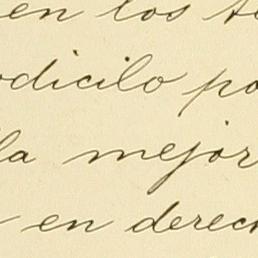 en los
odicilo po
la mejor
en derech